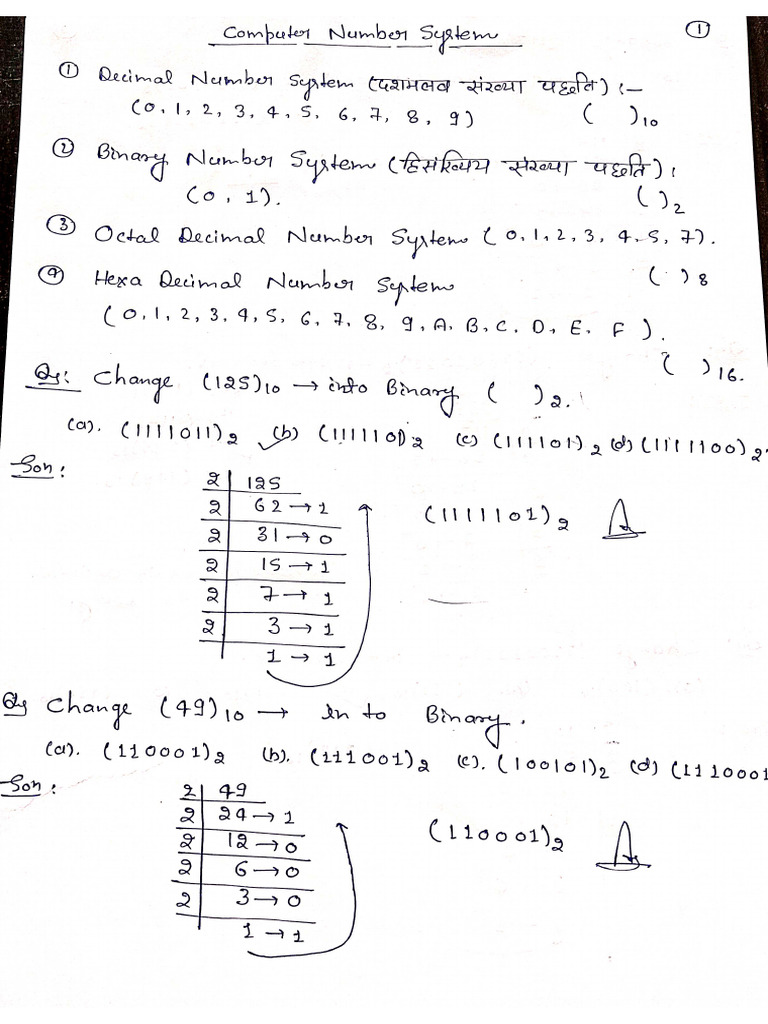 Computer Number System ①
① Decimal Number System (दशमलव संख्या पद्धति) :-
(0, 1, 2, 3, 4, 5, 6, 7, 8, 9) ( )10
② Binary Number System (द्विसंख्यिय संख्या पद्धति) :
(0, 1). ( )2
③ Octal Decimal Number System (0, 1, 2, 3, 4, 5, 7).
( )8
④ Hexa Decimal Number System
(0, 1, 2, 3, 4, 5, 6, 7, 8, 9, A, B, C, D, E, F).
( )16.
Qs: Change (125)10 → into Binary ( )2.
(a). (1111011)2 ✓(b) (1111101)2 (c) (111101)2 (d) (1111100)2.
Son:
2 | 125
2 | 62 → 1
2 | 31 → 0
2 | 15 → 1
2 | 7 → 1
2 | 3 → 1
1 → 1
(1111101)2 A
Qs Change (49)10 → In to Binary.
(a). (110001)2 (b). (111001)2 (c). (100101)2 (d) (1110001
Son:
2 | 49
2 | 24 → 1
2 | 12 → 0
2 | 6 → 0
2 | 3 → 0
1 → 1
(110001)2 A